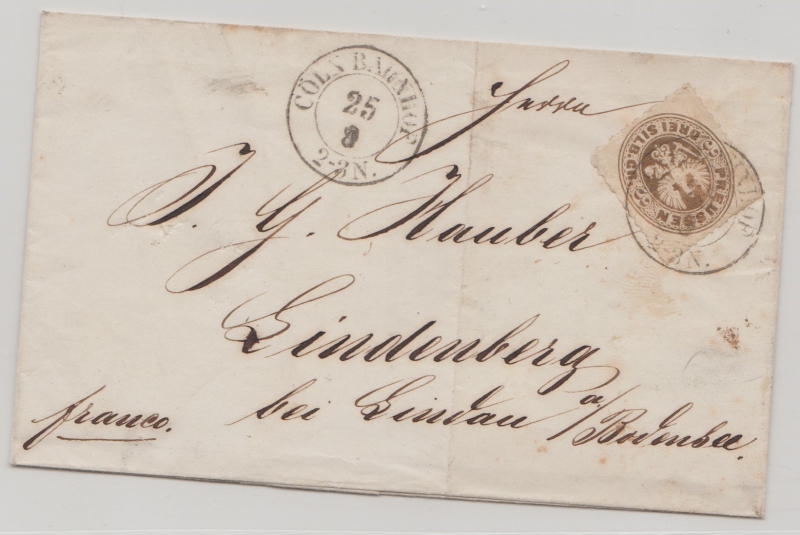 CÖLN BAHNHOF
25
8
2-3N.
Herrn
PREUSSEN
DREI SILB.GR.
HOF
2-3N.
J. G. Hauber
Lindenberg
bei Lindau a/Bodensee.
franco.